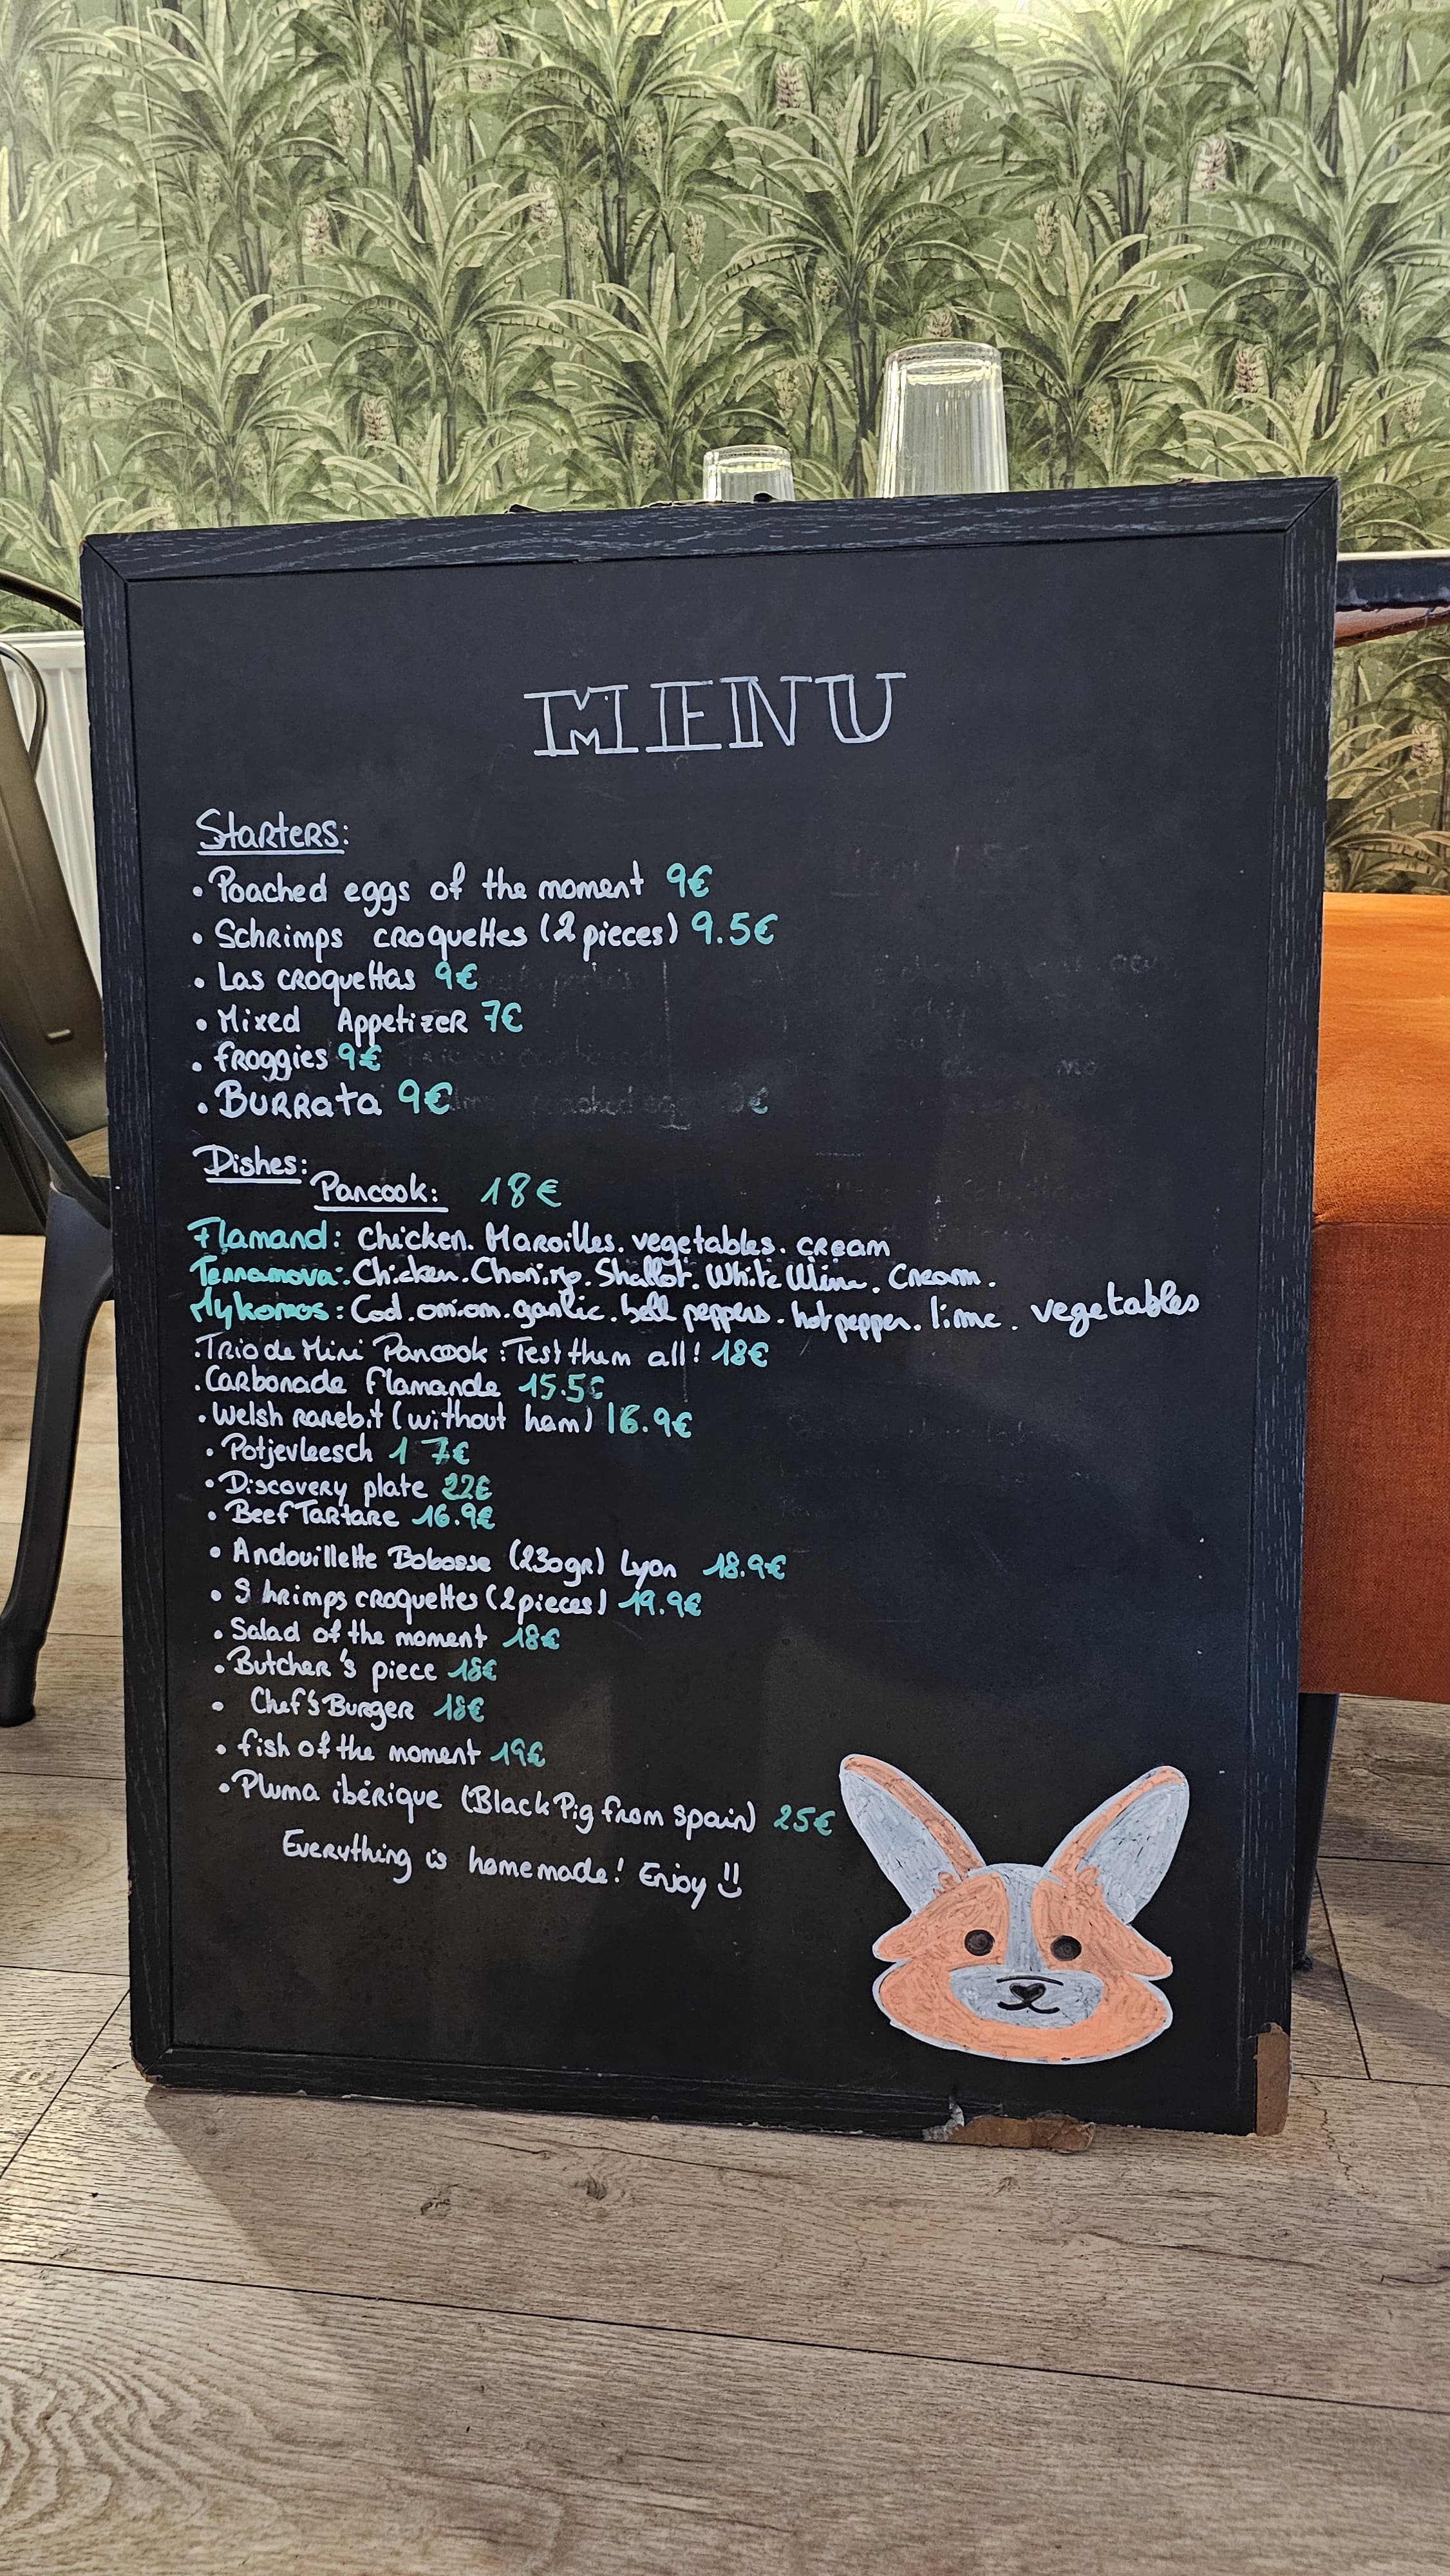 MENU
Starters:
• Poached eggs of the moment 9€
• Schrimps croquettes (2 pieces) 9.5€
• Las croquettas 9€
• Mixed Appetizer 7€
• froggies 9€
• Burrata 9€
Dishes:
Pancook: 18€
Flamand: Chicken. Maroilles. vegetables. cream
Terranova: Chicken. Chorizo. Shallot. White Wine. Cream.
Mykonos: Cod. onion. garlic. bell peppers. hot pepper. lime. vegetables
. Trio de Mini Pancook : Test them all! 18€
. Carbonade flamande 15.5€
. Welsh rarebit (without ham) 16.9€
• Potjevleesch 17€
• Discovery plate 22€
• Beef Tartare 16.9€
• Andouillette Bobosse (230gr) Lyon 18.9€
• Shrimps croquettes (2 pieces) 19.9€
• Salad of the moment 18€
• Butcher's piece 18€
• Chef's Burger 18€
• fish of the moment 19€
• Pluma ibérique (Black Pig from spain) 25€
Everything is homemade! Enjoy !!